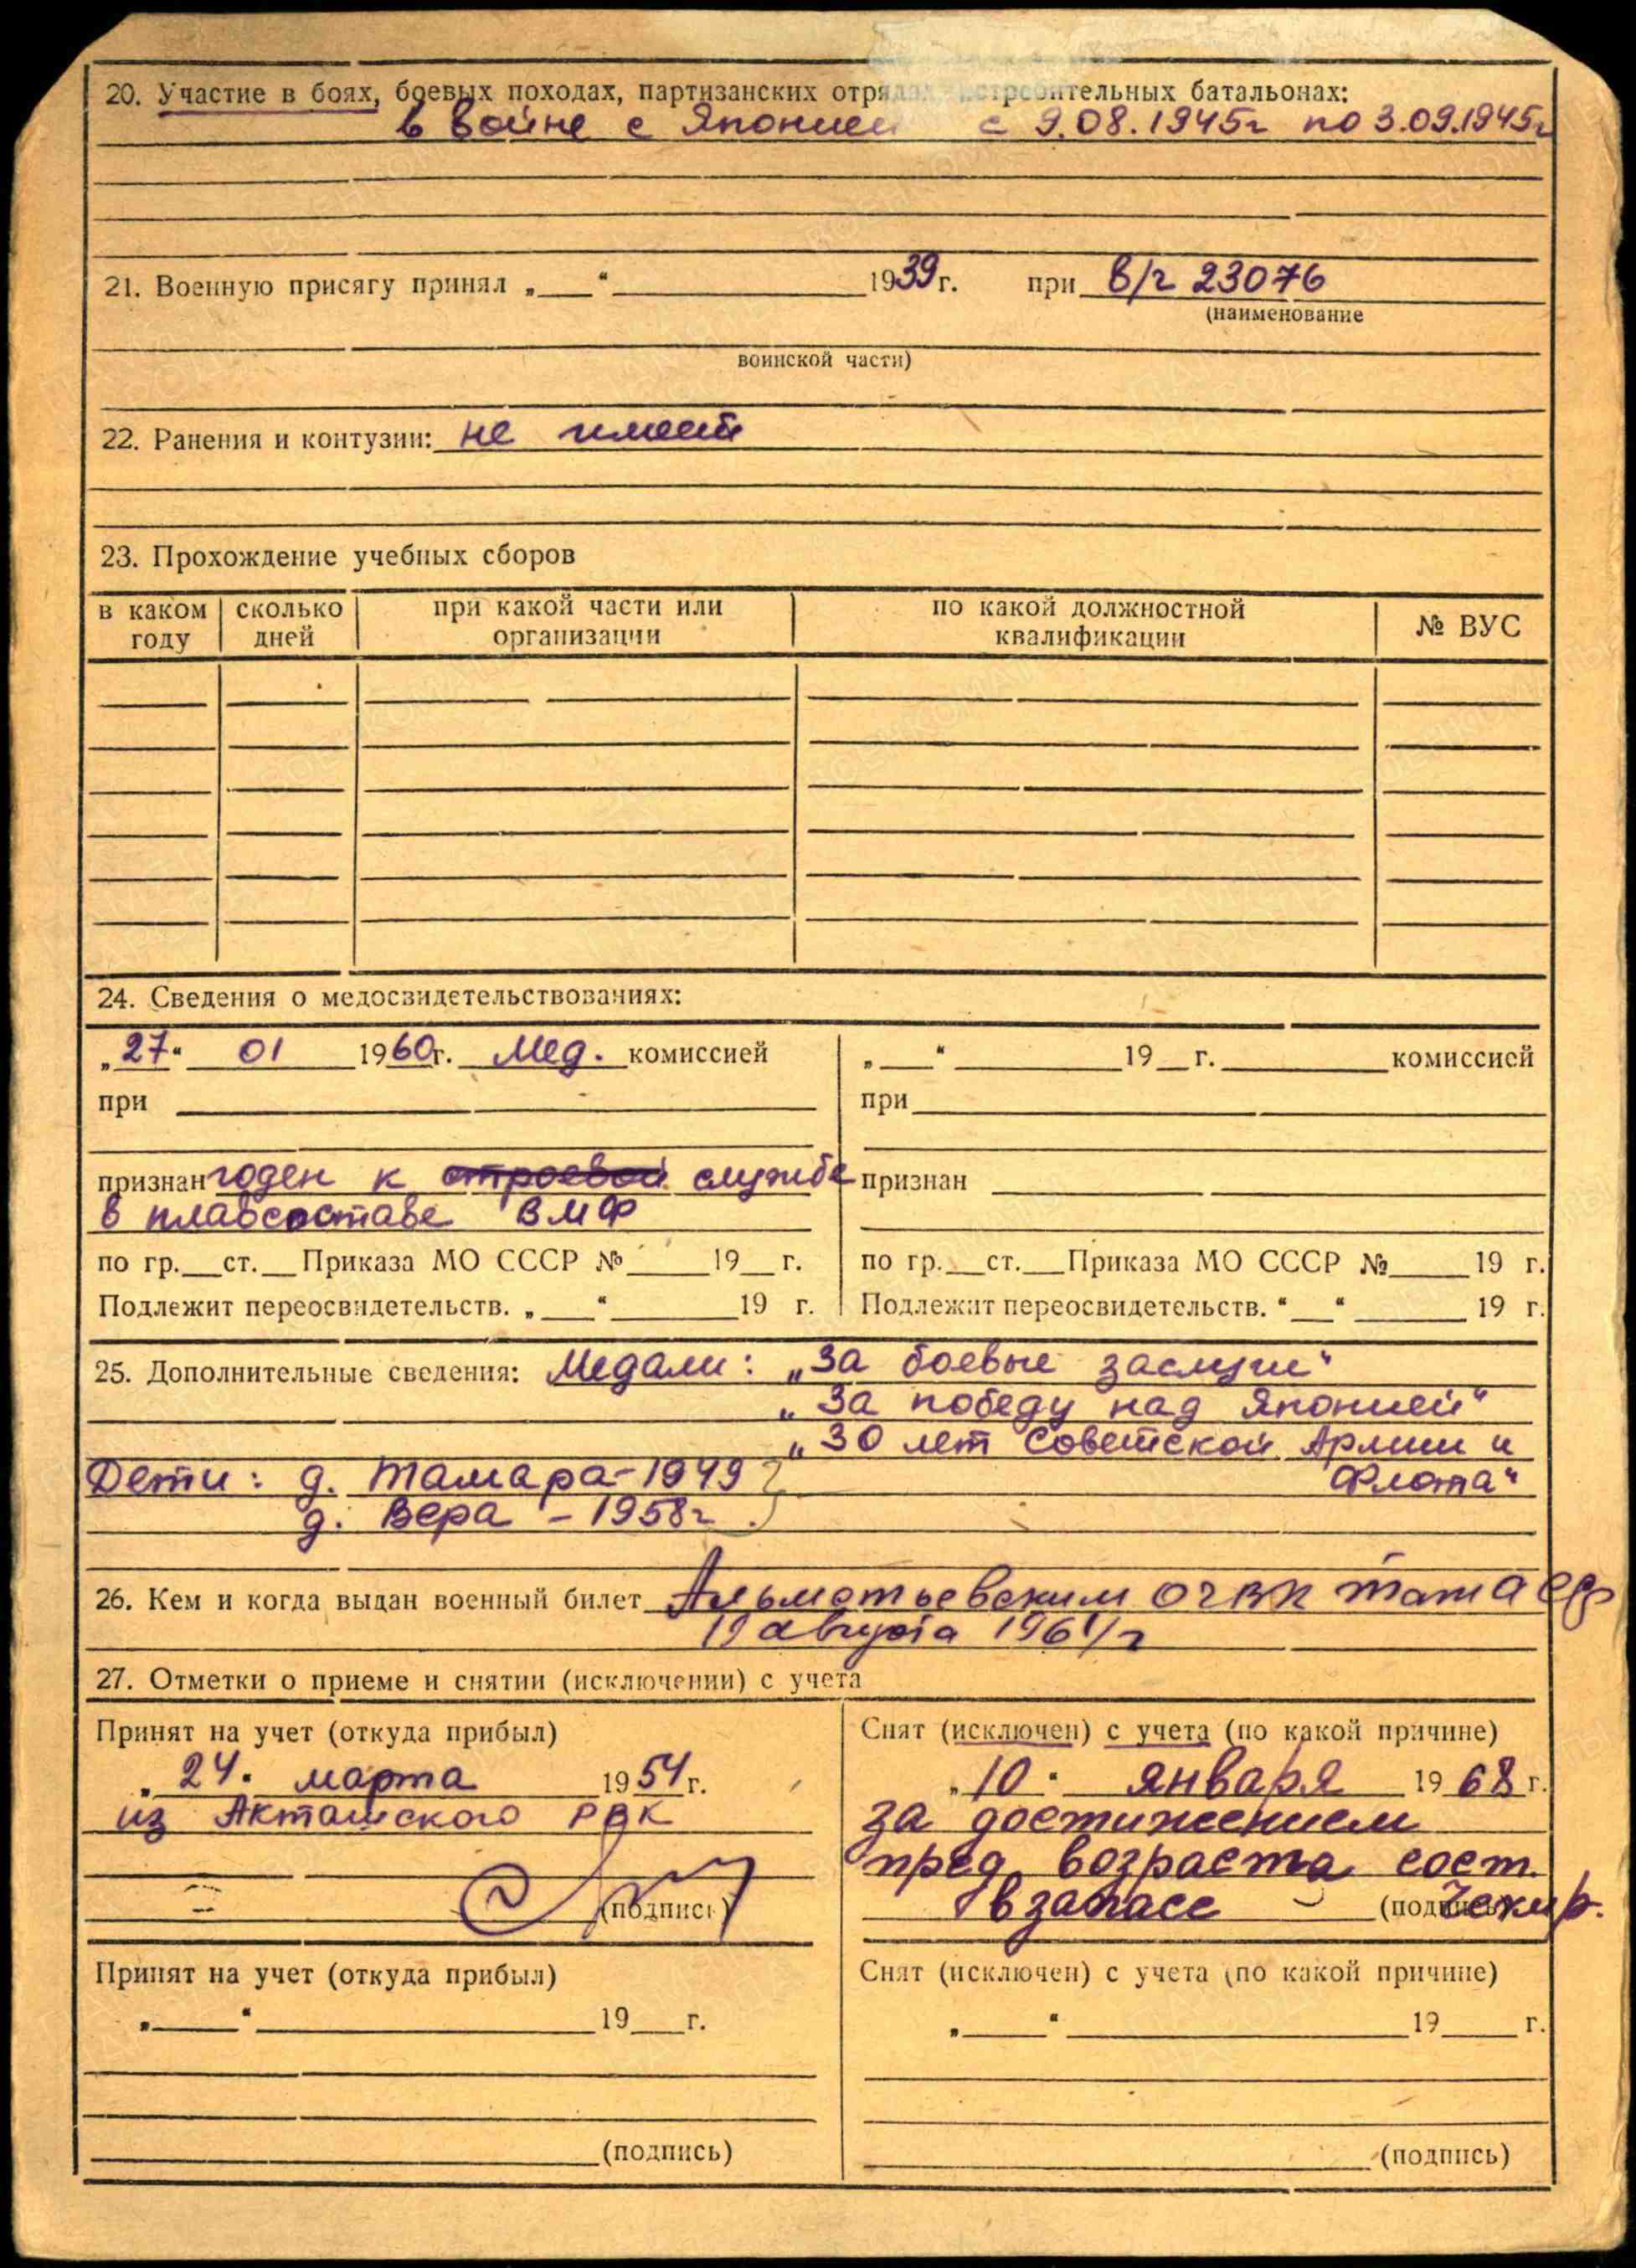 20. Участие в боях, боевых походах, партизанских отрядах, истребительных батальонах:
в войне с Японией с 9.08.1945г по 3.09.1945г
21. Военную присягу принял „___“ ___ 1939г. при в/ч 23076
(наименование
воинской части)
22. Ранения и контузии: не имеет
23. Прохождение учебных сборов
в каком году | сколько дней | при какой части или организации | по какой должностной квалификации | № ВУС
24. Сведения о медосвидетельствованиях:
„27“ 01 1960г. Мед. комиссией
при
признан годен к службе
в плавсоставе ВМФ
по гр.__ст.__Приказа МО СССР №____19__г.
Подлежит переосвидетельств. „___“______19 г.
„___“ ______19__г.______комиссией
при
признан
по гр.__ст.__Приказа МО СССР №____19 г.
Подлежит переосвидетельств. “__“ _____ 19 г.
25. Дополнительные сведения: Медали: „За боевые заслуги“
„За победу над Японией“
„30 лет Советской Армии и
Флота“
Дети: д. Тамара-1949
д. Вера - 1958г.
26. Кем и когда выдан военный билет Альметьевским ОГВК ТатАССР
19 августа 1961г
27. Отметки о приеме и снятии (исключении) с учета
Принят на учет (откуда прибыл)
„24“ марта 1954г.
из Акташского РВК
(подпись)
Снят (исключен) с учета (по какой причине)
„10“ января 1968г.
за достижением
пред. возраста сост.
в запасе (подпись)
Принят на учет (откуда прибыл)
„____“__________19__г.
(подпись)
Снят (исключен) с учета (по какой причине)
„____“__________19____г.
(подпись)